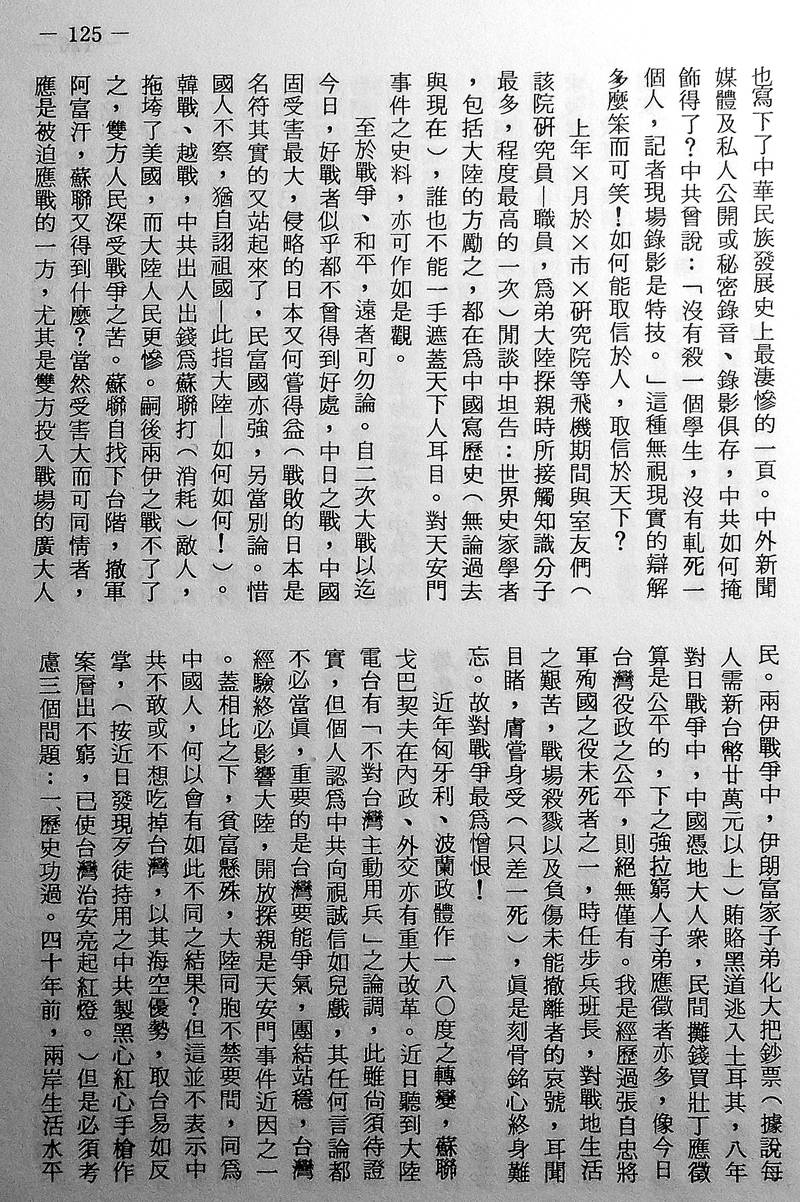 — 125 —
也寫下了中華民族發展史上最淒慘的一頁。中外新聞
媒體及私人公開或秘密錄音、錄影俱存，中共如何掩
飾得了？中共曾說：「沒有殺一個學生，沒有軋死一
個人，記者現場錄影是特技。」這種無視現實的辯解
多麼笨而可笑！如何能取信於人，取信於天下？
上年×月於×市×研究院等飛機期間與室友們（
該院研究員—職員，爲弟大陸探親時所接觸知識分子
最多，程度最高的一次）閒談中坦告：世界史家學者
，包括大陸的方勵之，都在爲中國寫歷史（無論過去
與現在），誰也不能一手遮蓋天下人耳目。對天安門
事件之史料，亦可作如是觀。
至於戰爭、和平，遠者可勿論。自二次大戰以迄
今日，好戰者似乎都不曾得到好處，中日之戰，中國
固受害最大，侵略的日本又何嘗得益（戰敗的日本是
名符其實的又站起來了，民富國亦強，另當別論。惜
國人不察，猶自詡祖國—此指大陸—如何如何！）。
韓戰、越戰，中共出人出錢爲蘇聯打（消耗）敵人，
拖垮了美國，而大陸人民更慘。嗣後兩伊之戰不了了
之，雙方人民深受戰爭之苦。蘇聯自找下台階，撤軍
阿富汗，蘇聯又得到什麼？當然受害大而可同情者，
應是被迫應戰的一方，尤其是雙方投入戰場的廣大人
民。兩伊戰爭中，伊朗富家子弟化大把鈔票（據說每
人需新台幣廿萬元以上）賄賂黑道逃入土耳其，八年
對日戰爭中，中國憑地大人衆，民間攤錢買壯丁應徵
算是公平的，下之強拉窮人子弟應徵者亦多，像今日
台灣役政之公平，則絕無僅有。我是經歷過張自忠將
軍殉國之役未死者之一，時任步兵班長，對戰地生活
之艱苦，戰場殺戮以及負傷未能撤離者的哀號，耳聞
目睹，膚嘗身受（只差一死），眞是刻骨銘心終身難
忘。故對戰爭最爲憎恨！
近年匈牙利、波蘭政體作一八〇度之轉變，蘇聯
戈巴契夫在內政、外交亦有重大改革。近日聽到大陸
電台有「不對台灣主動用兵」之論調，此雖尙須待證
實，但個人認爲中共向視誠信如兒戲，其任何言論都
不必當眞，重要的是台灣要能爭氣，團結站穩，台灣
經驗終必影響大陸，開放探親是天安門事件近因之一
。蓋相比之下，貧富懸殊，大陸同胞不禁要問，同爲
中國人，何以會有如此不同之結果？但這並不表示中
共不敢或不想吃掉台灣，以其海空優勢，取台易如反
掌，（按近日發現歹徒持用之中共製黑心紅心手槍作
案層出不窮，已使台灣治安亮起紅燈。）但是必須考
慮三個問題：一、歷史功過。四十年前，兩岸生活水平